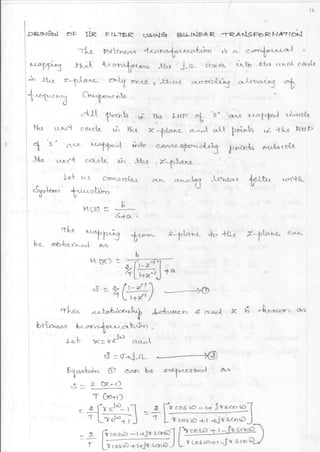 16
DESIGN OF IIR FILTER USING BILINEAR TRANSFORMATION
The Bilinear transformation is a conformal
mapping that transforms the jΩ axis into the unit circle
in the z-plane only once, thus avoiding aliasing of
frequency components.
All points in the LHP of 's' are mapped inside
the unit circle in the z-plane and all points in the RHP
of 's' are mapped into corresponding points outside
the unit circle in the z-plane.
Let us consider an analog linear filter with
system function
H(s) = b / s+a
The mapping from s-plane to the z-plane can
be obtained as
H(z) = b / 2/T [1-z⁻¹ / 1+z⁻¹] + a
s = 2/T (1-z⁻¹ / 1+z⁻¹)
This relationship between s and z is known as
bilinear transformation.
Let z = re^jω and
s = σ+jΩ
Equation can be expressed as
s = 2 (z-1) / T (z+1)
= 2/T [re^jω - 1 / re^jω + 1] = 2/T [r cos ω - 1 + jr sin ω / r cos ω + 1 + jr sin ω]
= 2/T [r cos ω - 1 + jr sin ω / r cos ω + 1 + jr sin ω] [r cos ω + 1 - jr sin ω / r cos ω + 1 - jr sin ω]